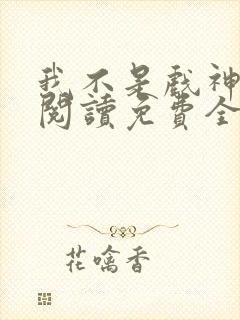 我不是戲神
閱讀免費全
花噙香